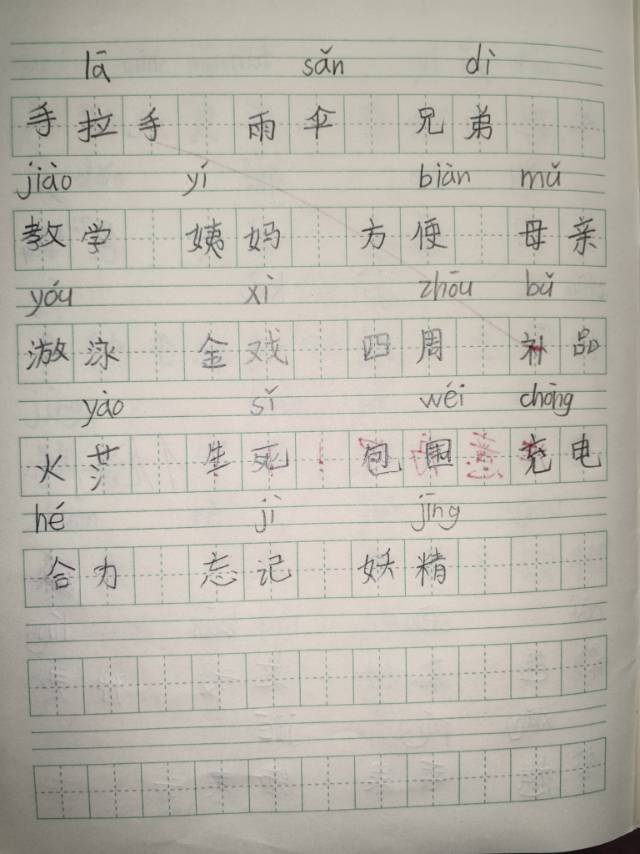 lā sǎn dì
手拉手 雨伞 兄弟
jiào yí biàn mǔ
教学 姨妈 方便 母亲
yóu xì zhōu bǔ
游泳 金戏 四周 补品
yào sǐ wéi chōng
火 生死 包围 充电
hé jì jīng
合力 忘记 妖精